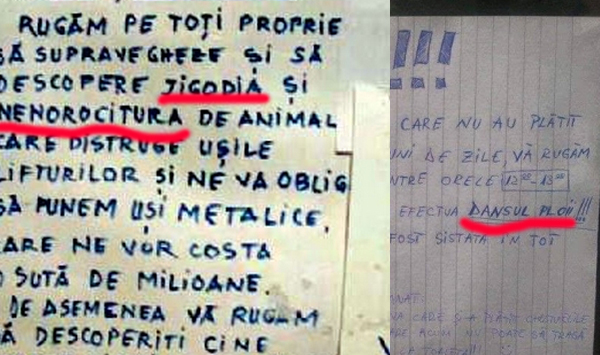 RUGĂM PE TOȚI PROPRIE
SĂ SUPRAVEGHEZE ȘI SĂ
DESCOPERE JIGODIA ȘI
NENOROCITURA DE ANIMAL
CARE DISTRUGE UȘILE
LIFTURILOR ȘI NE VA OBLIG
SĂ PUNEM UȘI METALICE,
ARE NE VOR COSTA
O SUTĂ DE MILIOANE.
DE ASEMENEA VĂ RUGĂM
Ă DESCOPERIȚI CINE
!!!
CARE NU AU PLĂTIT
UNI DE ZILE, VĂ RUGĂM
NTRE ORELE 12⁰⁰-13⁰⁰
EFECTUA DANSUL PLOII!!!
FOST SISTATĂ ÎN TOT